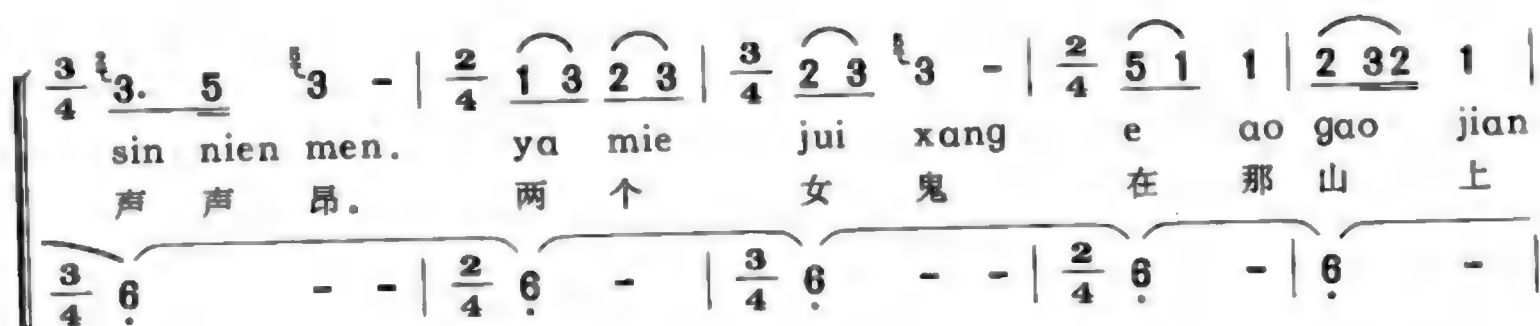 3/4 3. 5 3 - | 2/4 1 3 2 3 | 3/4 2 3 3 - | 2/4 5 1 1 | 2 32 1 |
sin nien men. ya mie jui xang e ao gao jian
声 声 昂。 两 个 女 鬼 在 那 山 上
3/4 6 - - | 2/4 6 - | 3/4 6 - - | 2/4 6 - | 6 - |